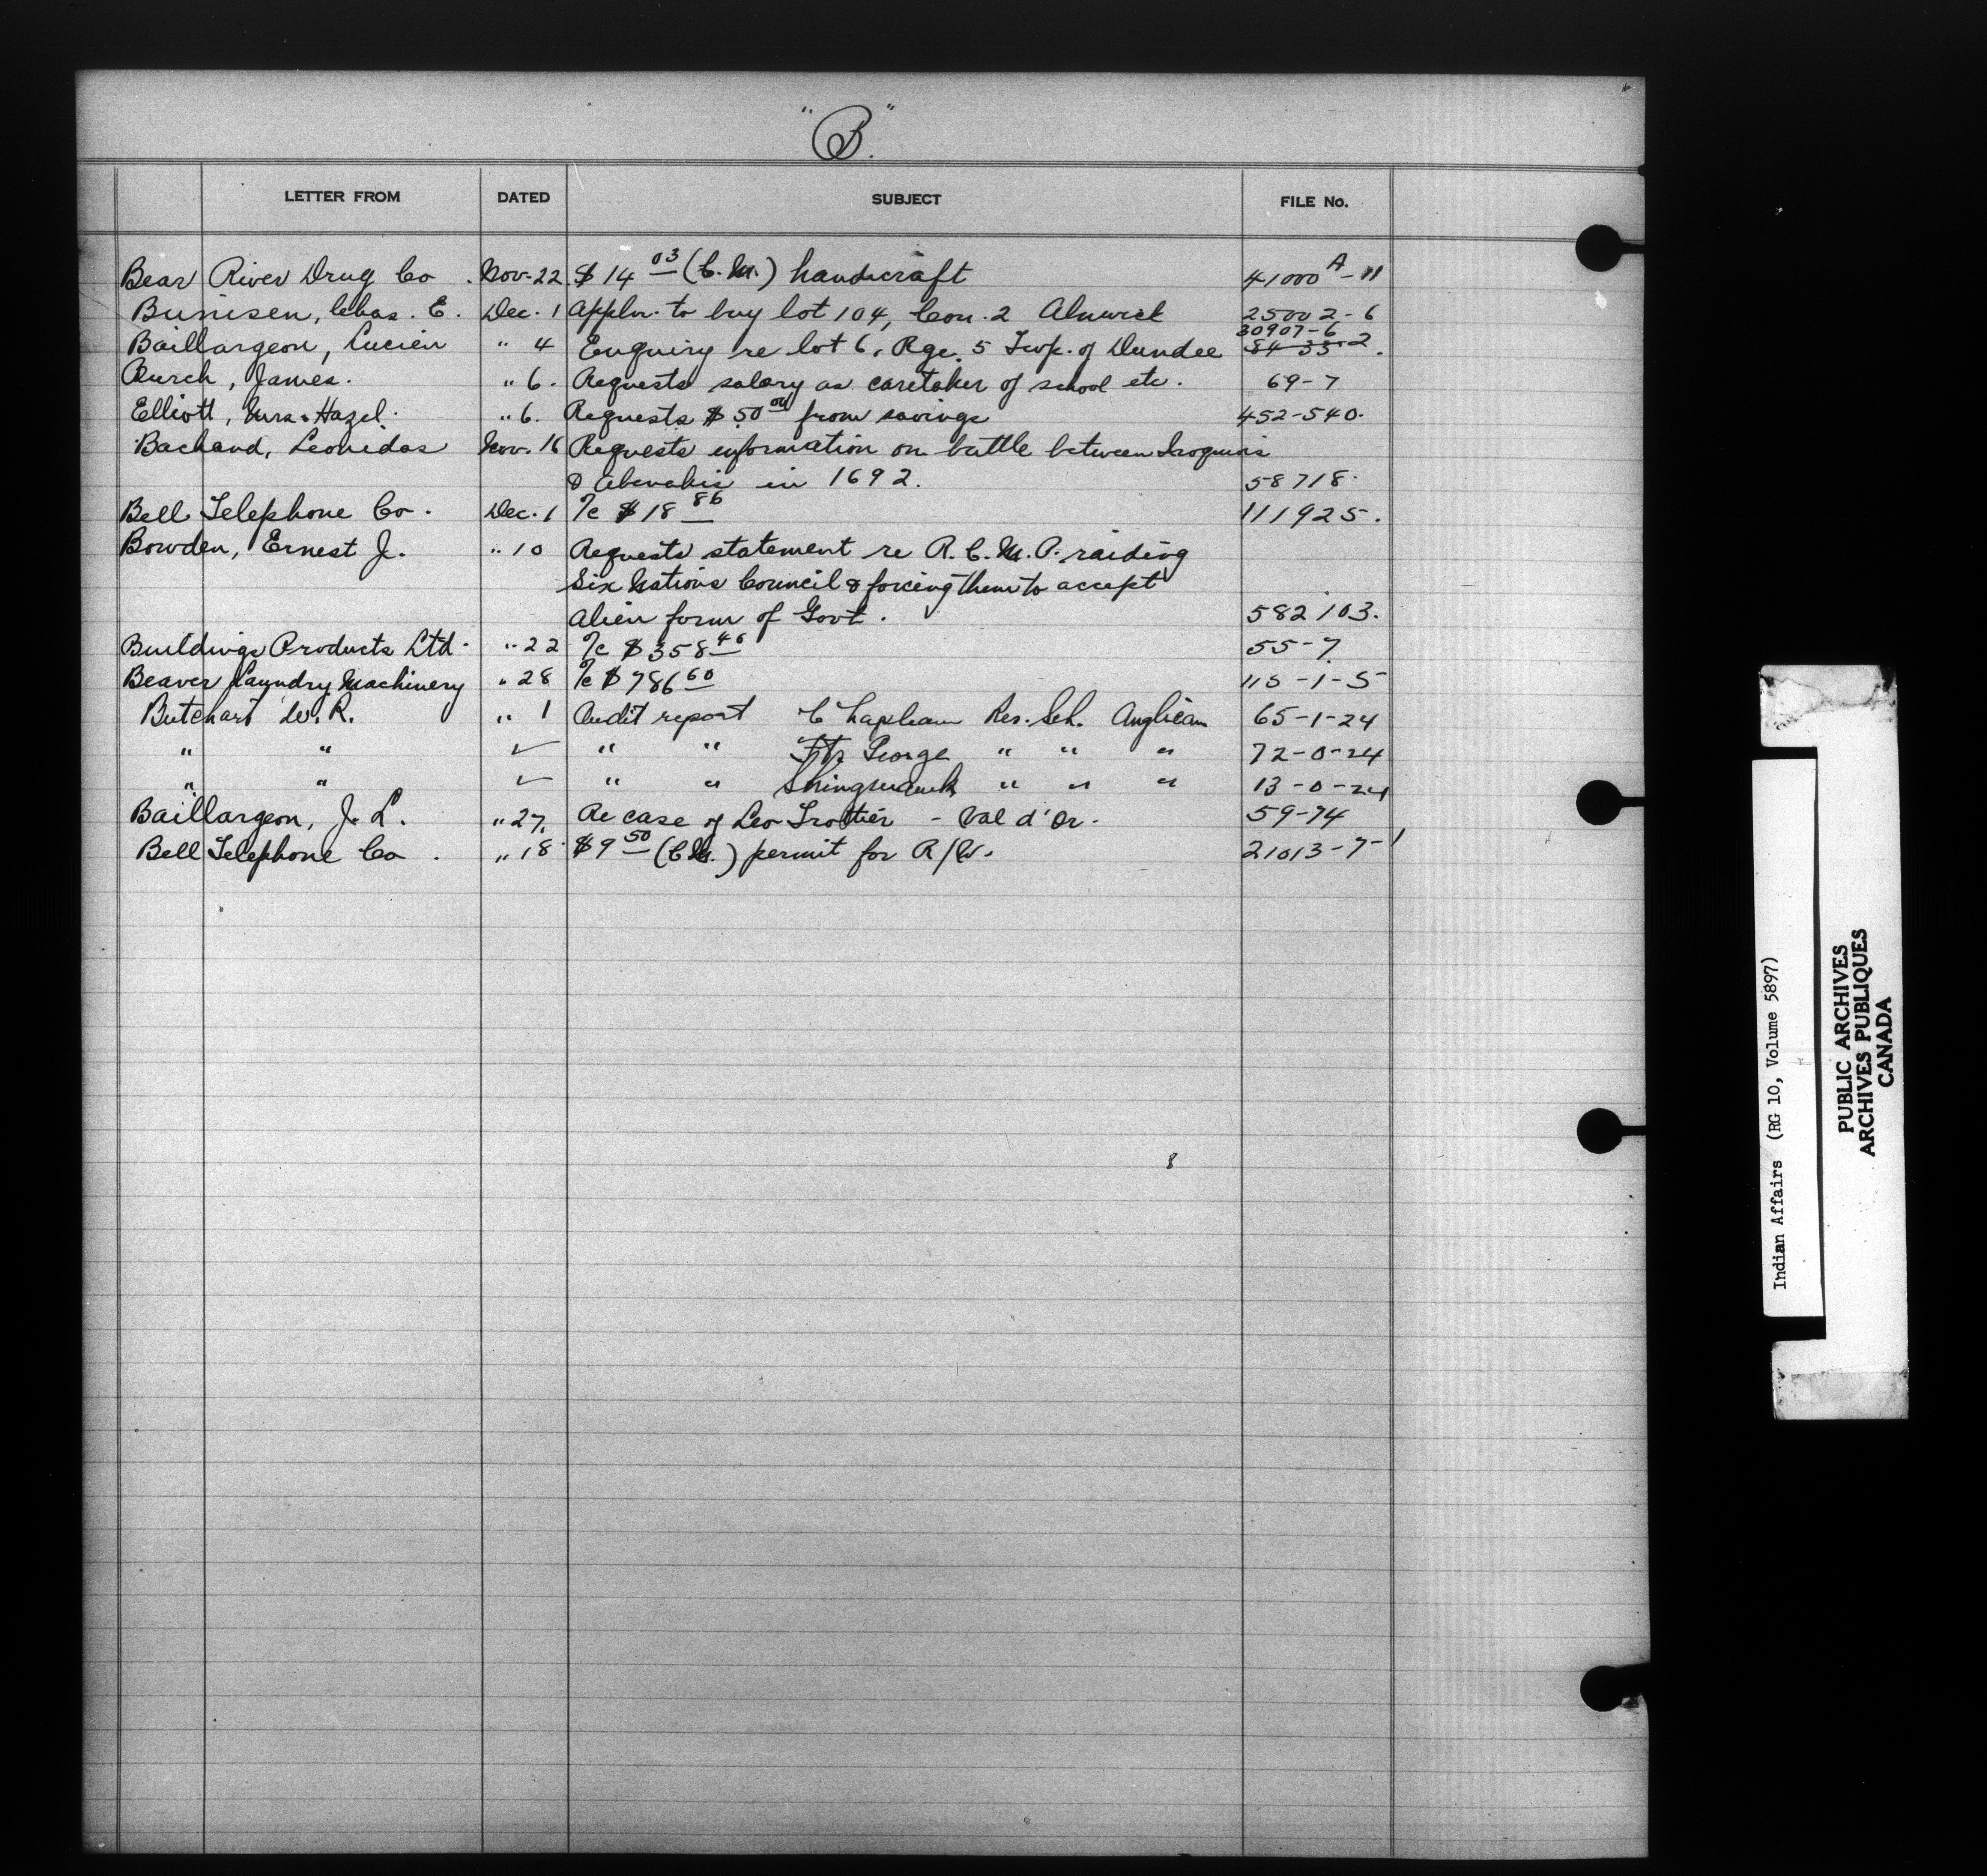 "B."
LETTER FROM DATED SUBJECT FILE No.
Bear River Drug Co. Nov. 22 $14 03 (C.M.) handicraft 41000 A-11
Bunisen, Chas. E. Dec. 1 Appln. to buy lot 104, Con. 2 Alnwick 25002-6
Baillargeon, Lucien " 4 Enquiry re lot 6, Rge. 5 Twp. of Dundee 30907-6 84-33-2.
Burch, James. " 6. Requests salary as caretaker of school etc. 69-7
Elliott, Mrs. Hazel. " 6. Requests $50 00 from savings 452-540.
Bachand, Leonidas Nov. 16 Requests information on battle between Iroquois
& Abenakis in 1692. 58718.
Bell Telephone Co. Dec. 1 T/c $18 86 111925.
Bowden, Ernest J. " 10 Requests statement re R.C.M.P. raiding
Six Nations Council & forcing them to accept
alien form of Govt. 582103.
Buildings Products Ltd. " 22 T/c $358 46 55-7
Beaver Laundry Machinery " 28 T/c $786 60 115-1-5
Butchart W.R. " 1 Audit report Chapleau Res. Sch. Anglican 65-1-24
" " ✓ " " Ft. George " " " 72-0-24
" " ✓ " " Shingwauk " " " 13-0-24
Baillargeon, J. L. " 27. Re case of Leo Trottier - Val d'Or. 59-74
Bell Telephone Co. " 18 $9 50 (C.M.) permit for R/W. 21013-7-1
8
Indian Affairs (RG 10, Volume 5897)
PUBLIC ARCHIVES
ARCHIVES PUBLIQUES
CANADA